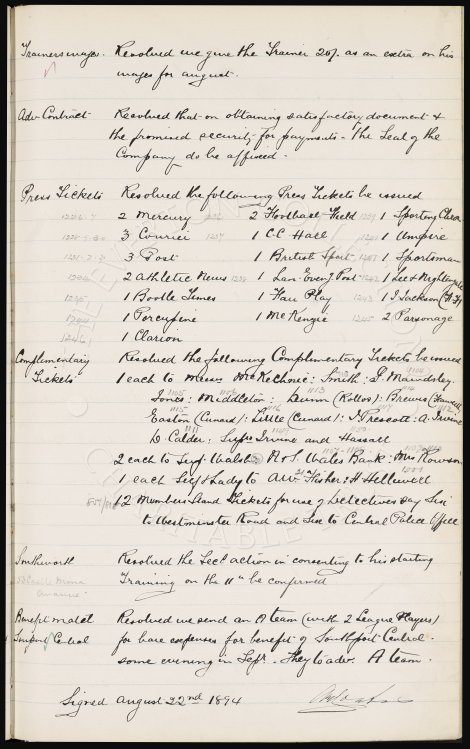 Trainers wages. Resolved we give the Trainer 20/. as an extra on his
wages for august.
Adv Contract Resolved that on obtaining satisfactory document &
the promised security for payments - the Seal of the
Company do be affixed.
Press Tickets Resolved the following Press Tickets be issued
2 Mercury 2 Football Field 1 Sporting Chron
3 Courier 1237 1 C.C Hall 1 Umpire
3 Post 1 British Sport 1 Sportsman
2 Athletic News 1 Lan Eveng Post 1 Lee & Nightingale
1 Bootle Times 1 Fair Play 1243 1 J Jackson
1 Porcupine 1 McKenzie 1245 2 Parsonage
1 Clarion
Complimentary Resolved the following Complimentary Tickets be issued
Tickets 1 each to Messrs McKechnie: Smith: Mawdsley.
Jones: Middleton: Dunn (Rollos): Brewis
Easton (Cunard): Little (Cunard): Prescott: A. Irvine
Dr Calder: Supts Irvine and Hassall
2 each to Serjt Walsh N & S. Wales Bank: Mrs Rowson
1 each Self & Lady to Fisher: H Helliwell
12 Members Stand Tickets for use of Detectives say Six
to Westminster Road and Six to Central Police Office
Southworth Resolved the Secs action in consenting to his starting
Training on the 11th be confirmed
Benefit match Resolved we send an A team (with 2 League Players)
Southport Central for bare expenses for benefit of Southport Central -
some evening in Sept. They to adv. A team.
Signed August 22nd 1894